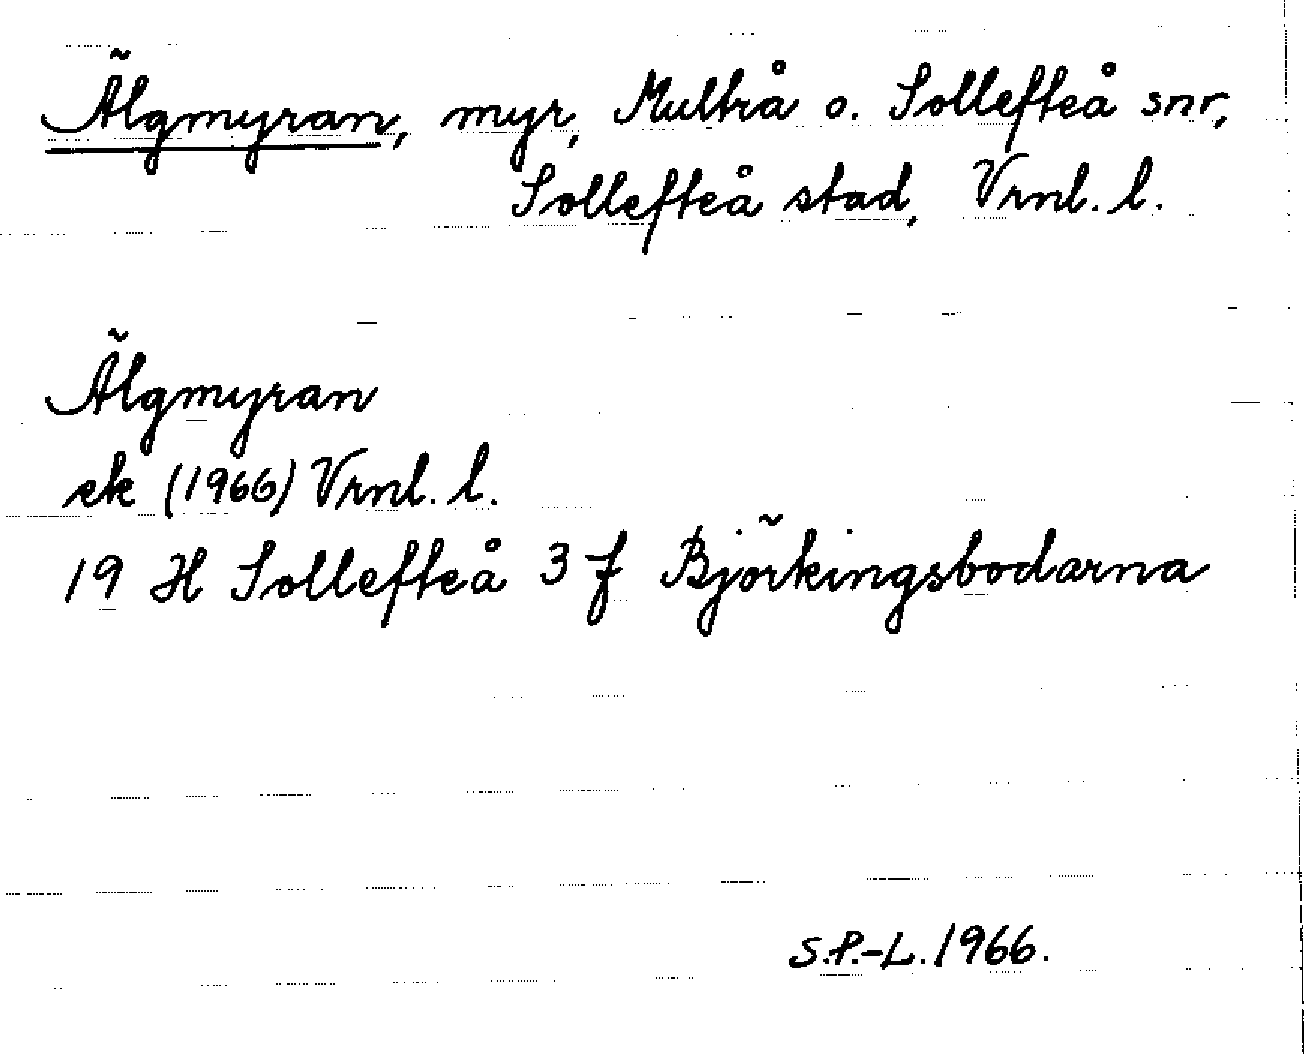 Älgmyran, myr, Multrå o. Sollefteå snr,
Sollefteå stad, Vrnl. l.
Älgmyran
ek (1966) Vrnl. l.
19 H Sollefteå 3 f Björkingsbodarna
S.P.-L. 1966.